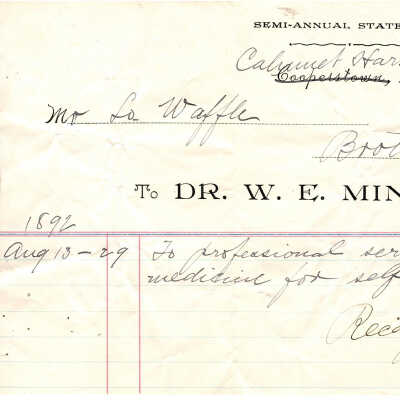 SEMI-ANNUAL STATE
Calumet Har
Cooperstown,
Mo La Waffle
Brot
To DR. W. E. MIN
1892
Aug 13-29 To professional ser
medicine for self
Rec